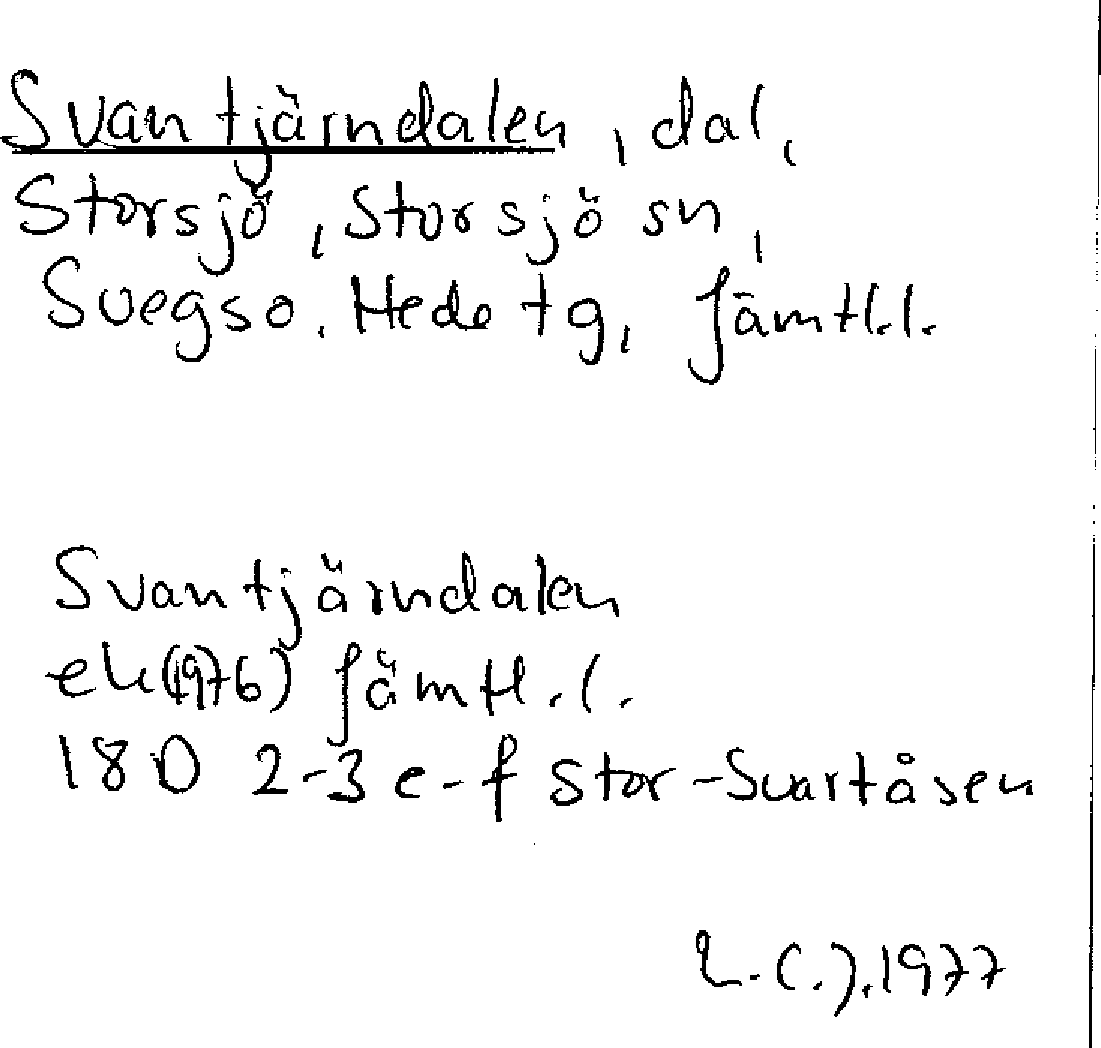 Svantjärndalen, dal,
Storsjö, Storsjö sn,
Svegs o. Hede tg, Jämtl.l.
Svantjärndalen
ek(1976) Jämtl.l.
18D 2-3 e-f Stor-Svartåsen
1977